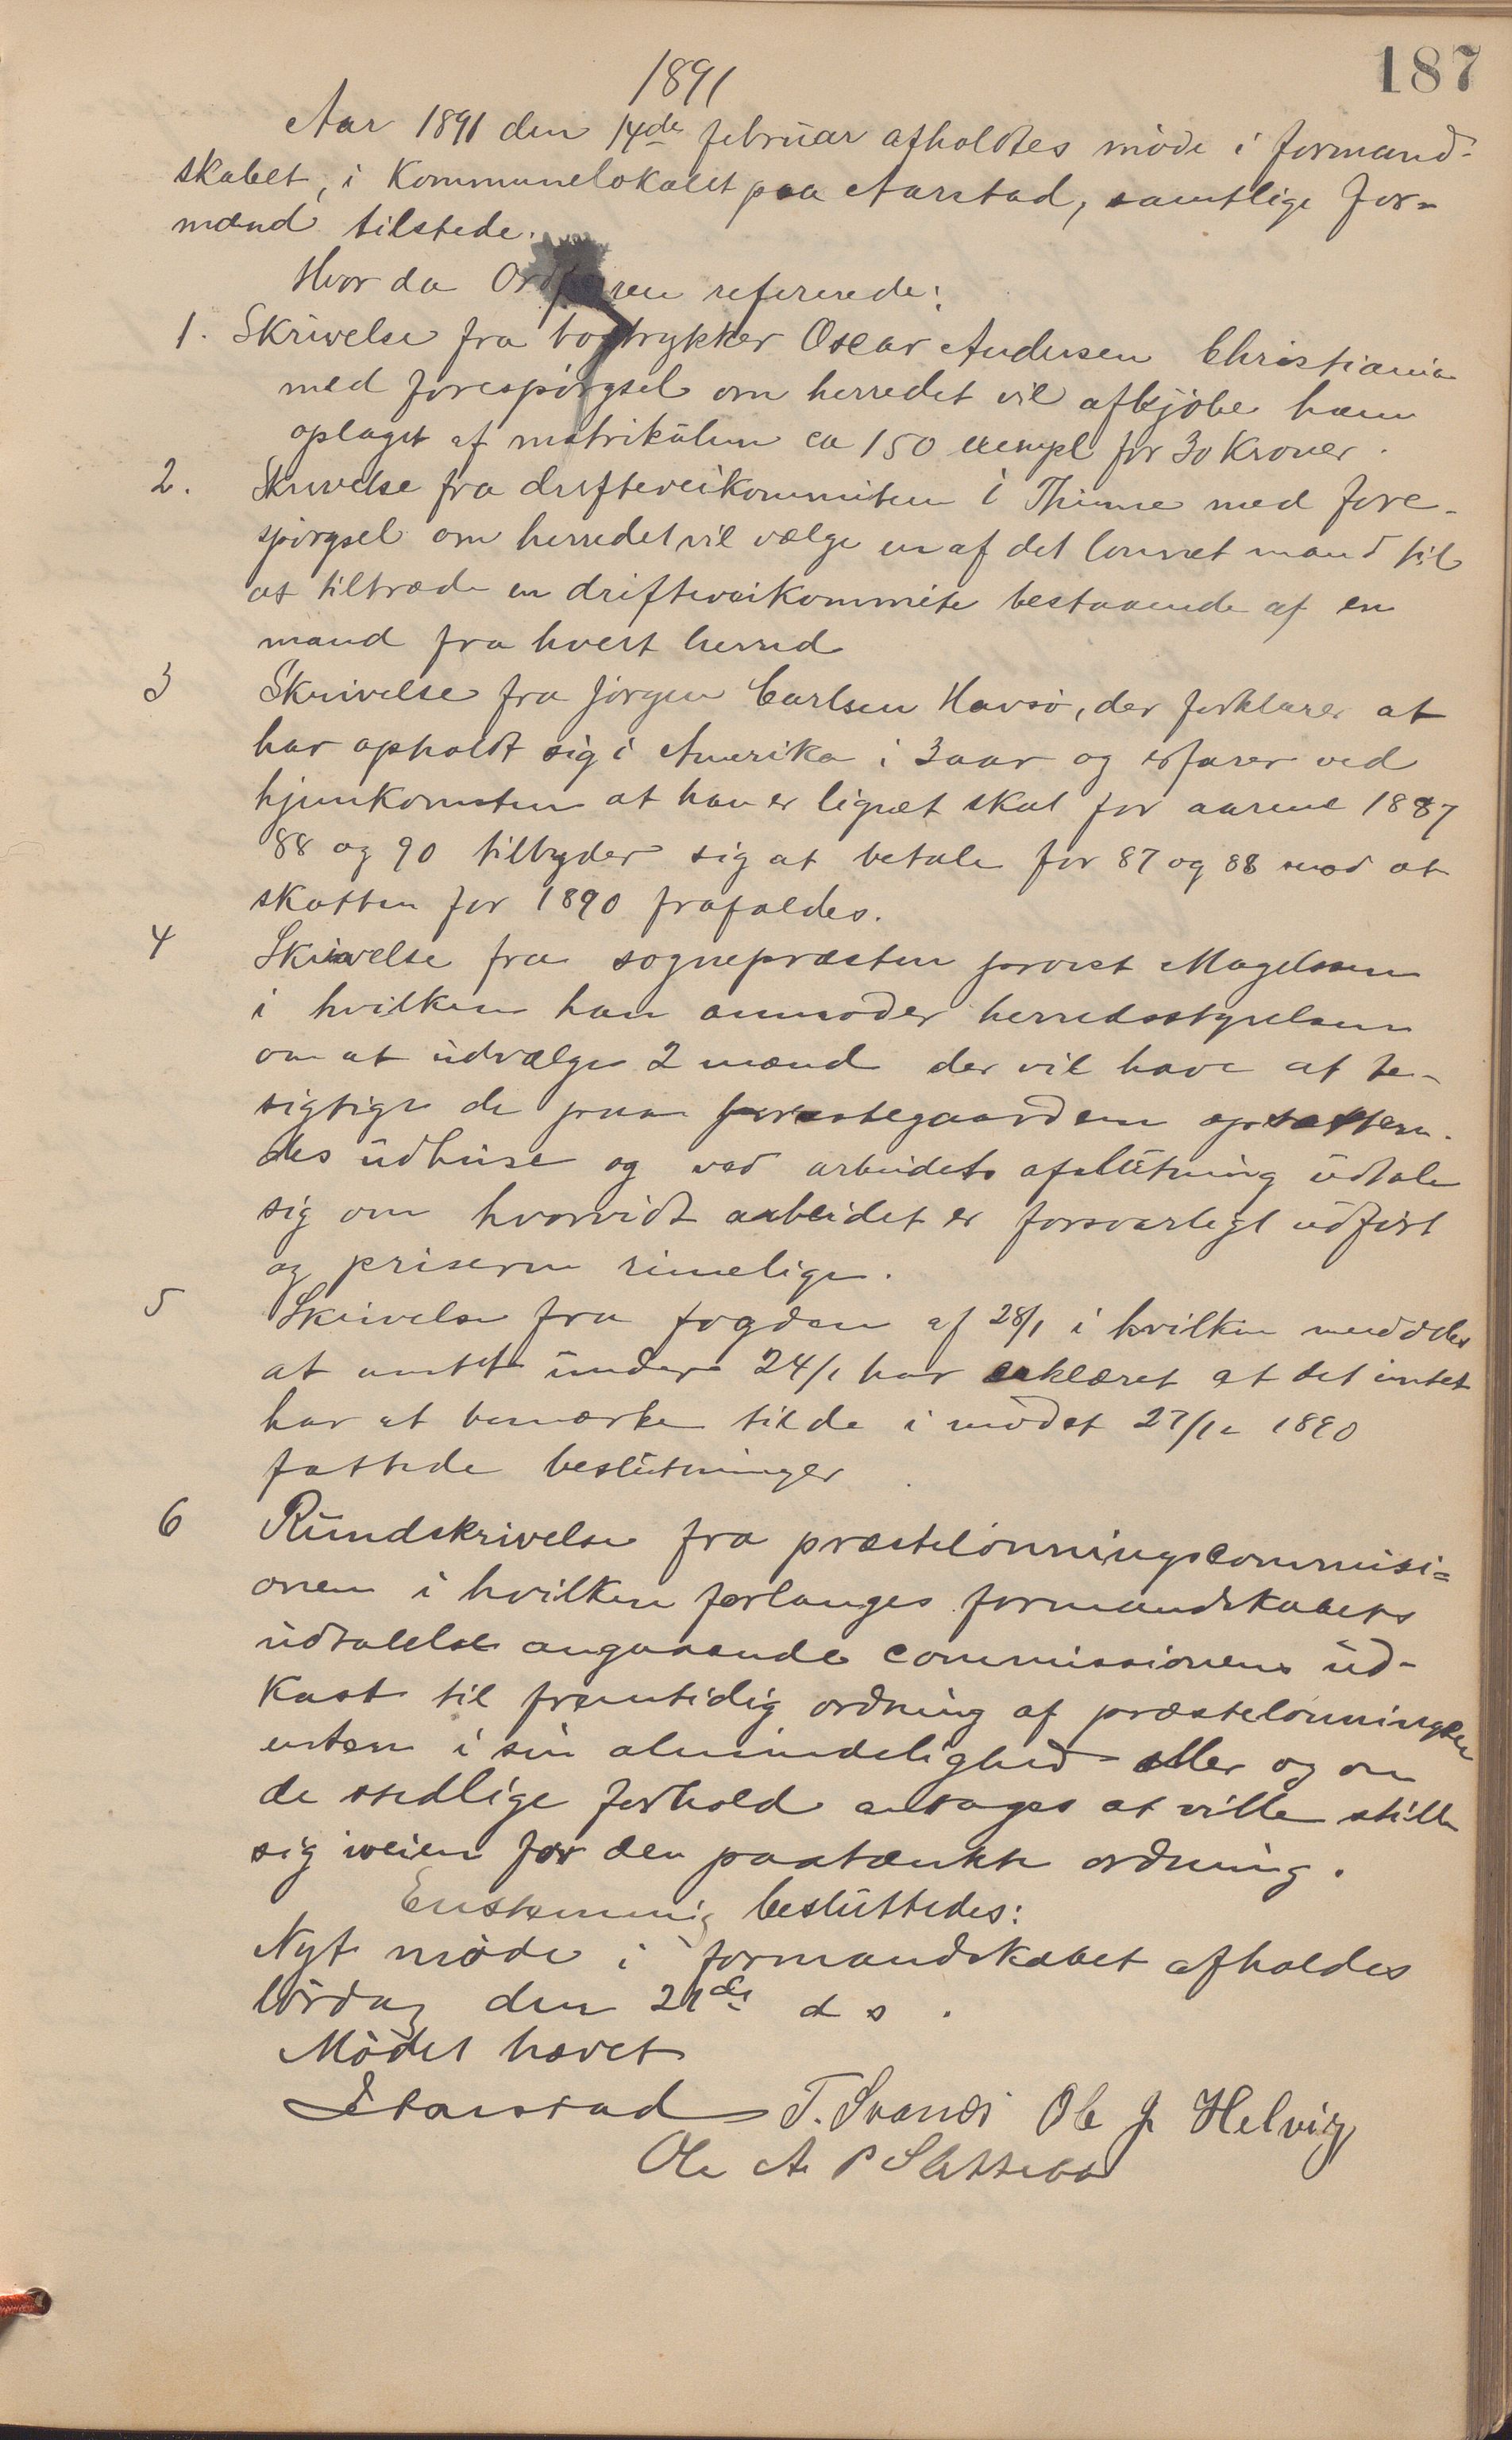 187
1891
Aar 1891 den 14de februar afholdtes møde i formand-
skabet, i Kommunelokalet paa Aarstad, samtlige for-
mænd tilstede.
Hvor da Ordføreren refererede:
1. Skrivelse fra bogtrykker Oscar Andersen Christiania
med forespørgsel om herredet vil afkjøbe ham
oplaget af matrikulen ca 150 exempl for 30 Kroner.
2. Skrivelse fra drifteveikommiteen i Thime med fore-
spørgsel om herredet vil vælge en af det lønnet mand til
at tiltræde en drifteveikommite bestaaende af en
mand fra hvert herred
3 Skrivelse fra Jørgen Carlsen Havsø, der forklarer at
har opholdt sig i Amerika i 3 aar og erfarer ved
hjemkomsten at han er lignet skat for aarene 1887
88 og 90 tilbyder sig at betale for 87 og 88 mod at
skatten for 1890 frafaldes.
4 Skrivelse fra sognepræsten provst Magelssen
i hvilken han anmoder herredsstyrelsen
om at udvælge 2 mænd der vil have at be-
sigtige de paa præstegaarden opsatten-
des udhuse og ved arbeidets afslutning udtale
sig om hvorvidt arbeidet er forsvarligt udført
og priserne rimelige.
5 Skrivelse fra fogden af 28/1 i hvilken meddeles
at amtet under 24/1 har erklæret at det intet
har at bemærke til de i mødet 27/12 1890
fattede beslutninger
6 Rundskrivelse fra præstelønningscommisi=
onen i hvilken forlanges formandskabets
udtalelse angaaende commissionens ud-
kast til fremtidig ordning af præstelønningen
enten i sin almindelighed eller og om
de stedlige forhold antages at ville stille
sig iveien for den paatænkte ordning.
Enstemmig besluttedes:
Nyt møde i formandskabet afholdes
lørdag den 21de d s.
Mødet hævet
Aarstad T. Svanes Ole J Helvig
Ole A P Slettebø